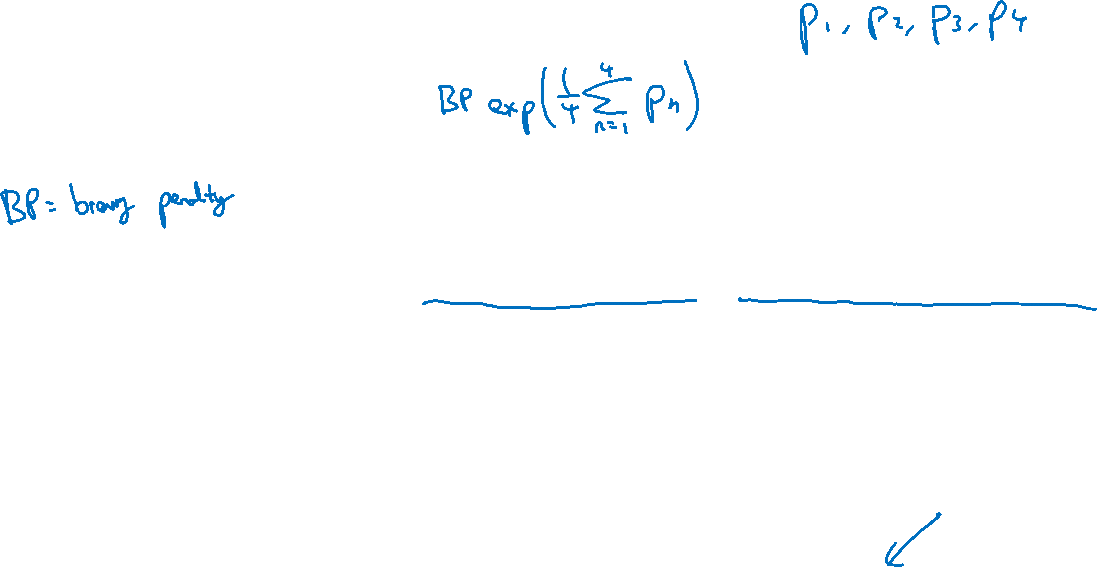 p₁, p₂, p₃, p₄
BP exp(1/4 ∑_{n=1}^{4} pₙ)
BP = brevity penalty